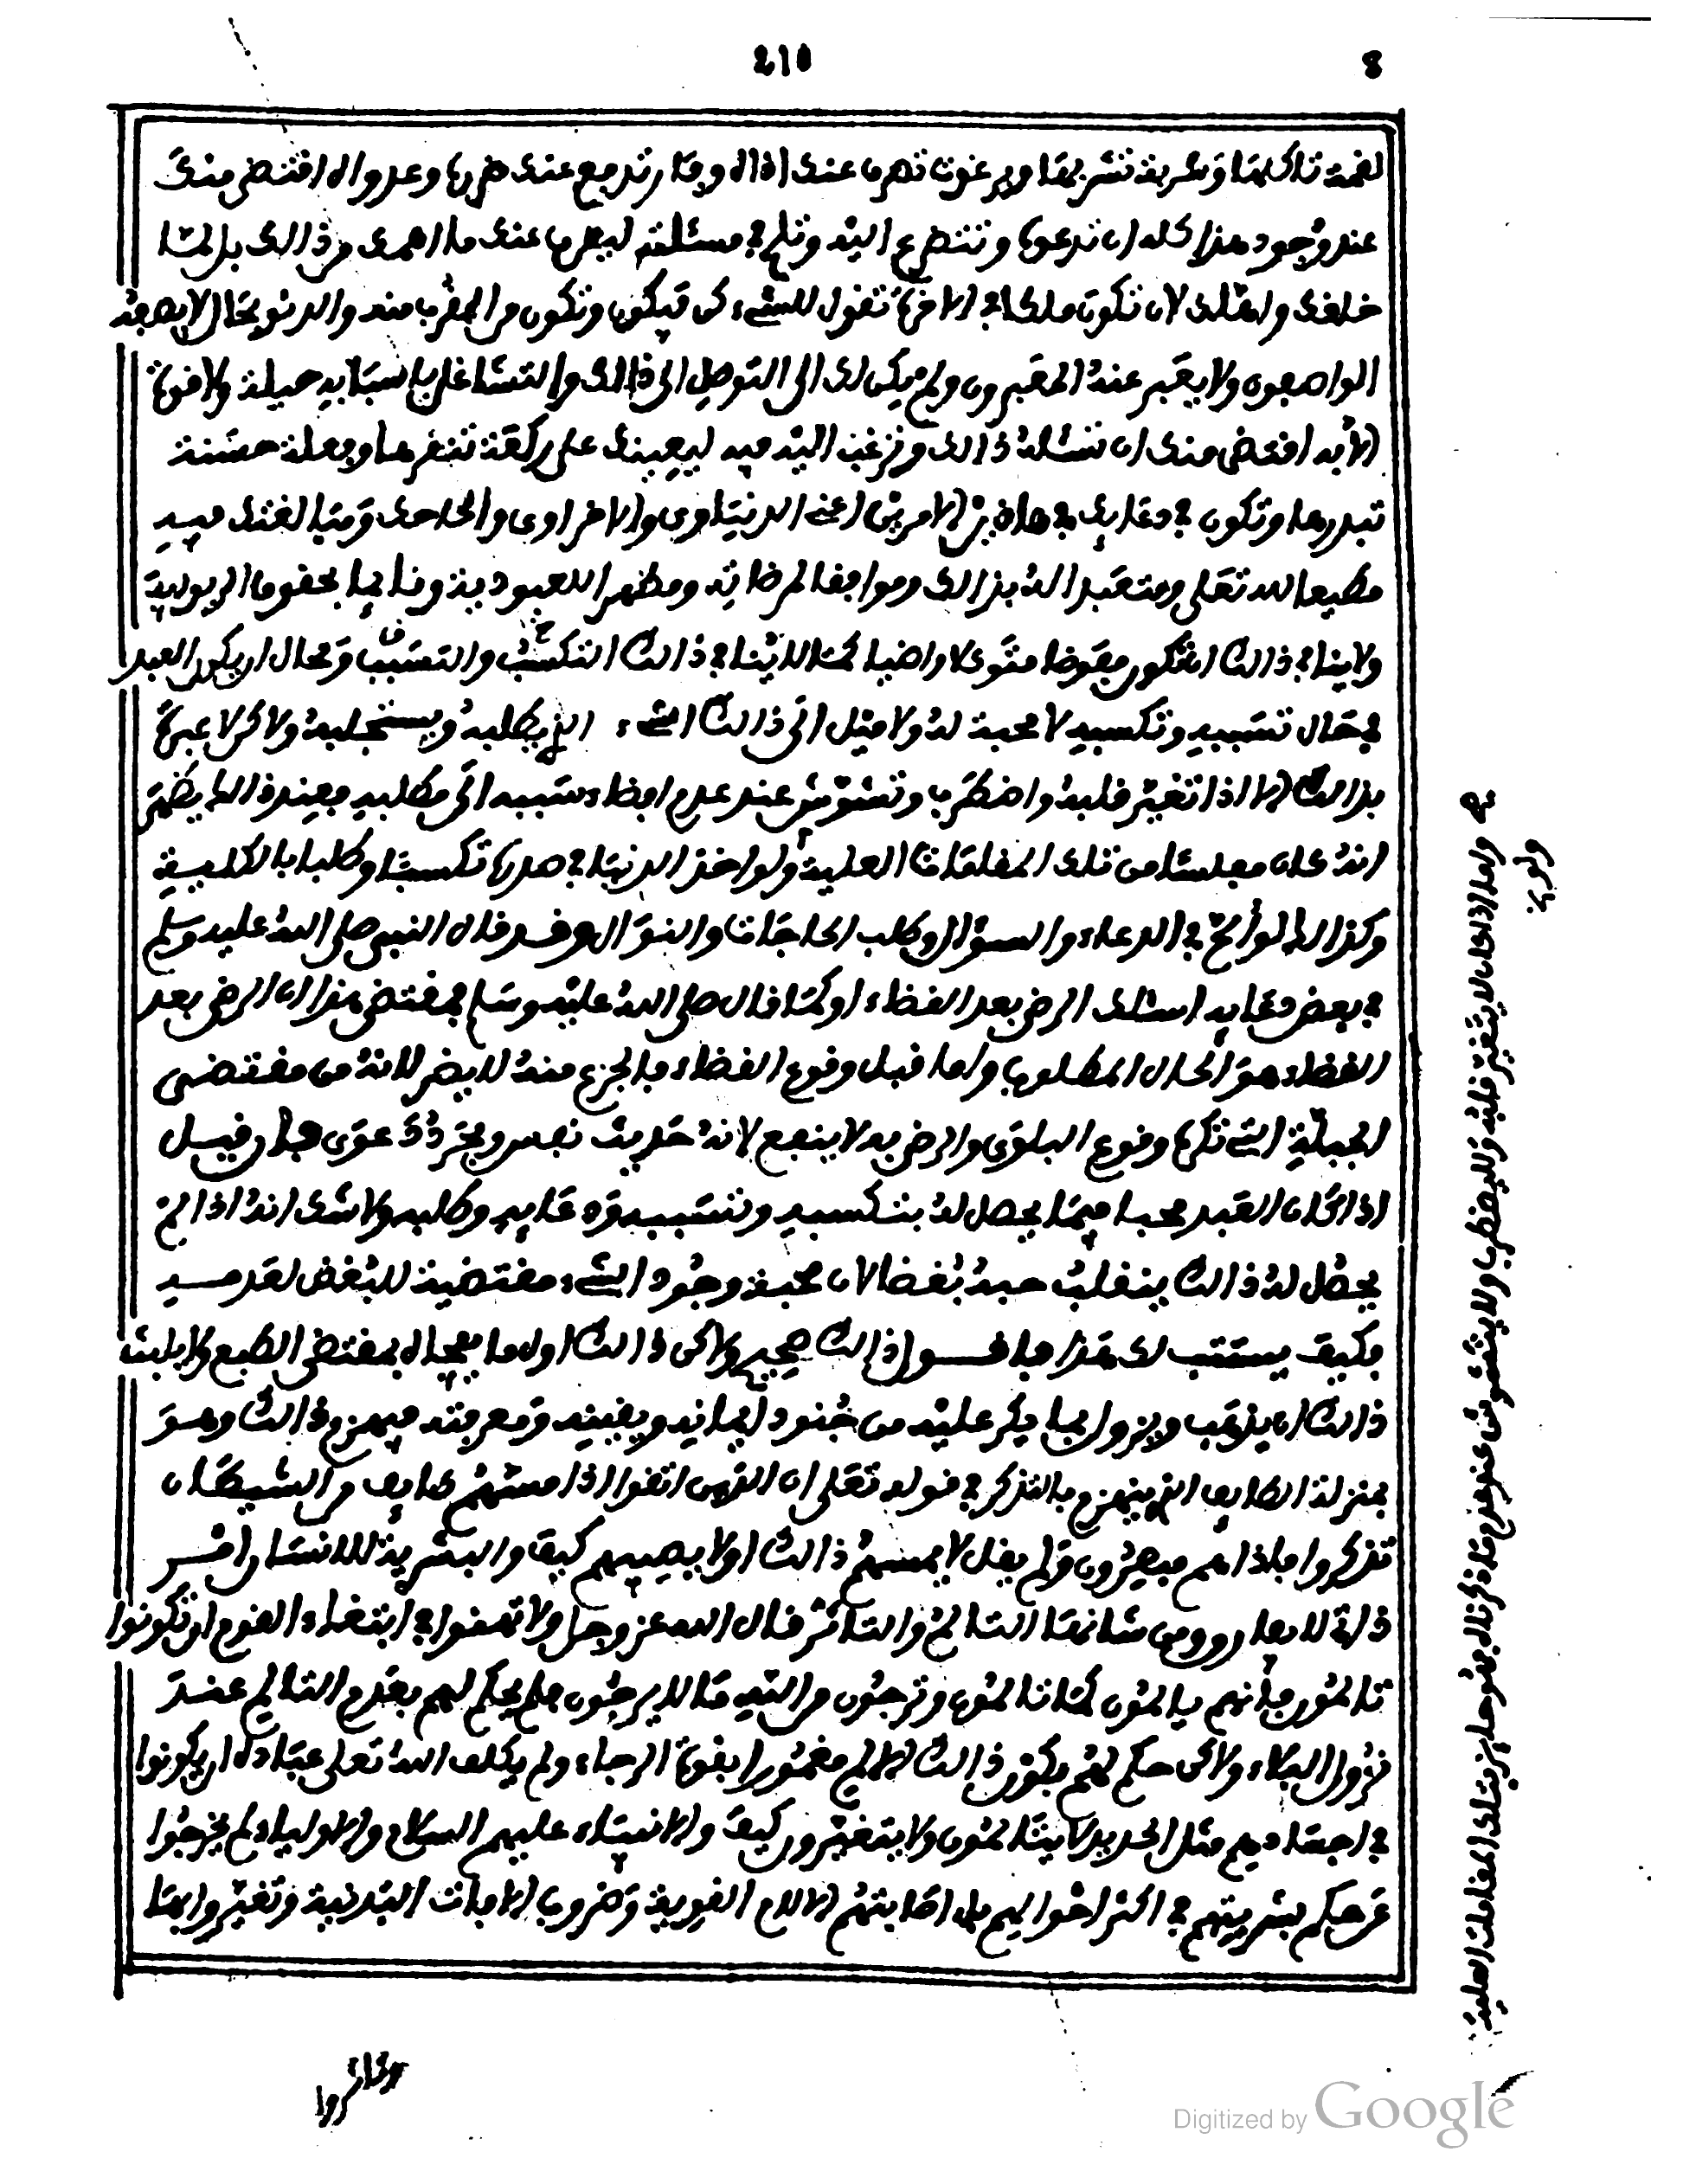 210
8
لقمة تاكلها وشربة تشربها وبرغوث تصرف عنك اذاه وفار تدفع عنك ضررها وعدو اله اقتضى منك
عند وجود هذا كله ان تدعوه وتتضرع اليه وتلح في مسئلته ليصرف عنك ما اهمك من ذالك بل لما
خلقك واهلك لان تكون ملكا في الاخرة تقول للشيء كن فيكون وتكون من المقرب منه والدنو بحال لا يصفه
الواصفون ولا يعبر عنه المعبرون ولم يكن لك الى التوصل الى ذالك والتشاغل باسبابه حيلة ولا قوة
الا به اقتضى منك ان تسئله ذالك وترغب اليه فيه ليعينك على ركعة تنقرها وبعلة حسنة
تبدرها وتكون في دعايك في هاذين الامرين اعني الدنياوي والاخراوي والحاحك ومبالغتك فيه
مطيعا لله تعلى ومتعبدا له بذالك وموافقا لمرضاته ومظهرا للعبودية وقايما بحقوق الربوبية
ولا ينافي ذالك ان تكون مفوضا متوكلا راضيا كما لا ينافي ذالك التكسب والتسبب ومحال ان يكون العبد
في حال تسببه وتكسبه لا محبة له ولا ميل الى ذالك الشيء الذي يطلبه ويستجلبه ولاكن لا عبرة
بذالك الا اذا تغير قلبه واضطرب وتشوش عند عدم افضاء سببه الى مطلبه فعند ذالك يظهر
انه كان مفلسا من تلك المقامات العلية ولو اخذ الدنيا في هدرها تكسبا وطلبا بالكلية
وكذالك لو الح في الدعاء والسؤال وطلب الحاجات والنوال وقد قال النبي صلى الله عليه وسلم
في بعض دعايه اسئلك الرضى بعد القضاء او كما قال صلى الله عليه وسلم فمقتضى هذا ان الرضى بعد
القضاء هو الحال المطلوب واما قبل وقوع القضاء فالجزع منه لا يضر لانه من مقتضى
الجبلة التي تكره وقوع البلوى والرضى به لا ينفع لانه حديث نفس ومجرد دعوى فان قيل
اذا كان العبد محبا فيما يحصل له بتكسبه وتسببه ودعايه وطلبه ولا شك انه اذا لم
يحصل له ذالك ينقلب حبه بغضا لان محبة وجود الشيء مقتضية للبغض لفقده
فكيف يستتب لك هذا فاقول ذالك صحيح ولاكن ذالك اول ما يفجاه بمقتضى الطبع ولا يلبث
ذالك ان يذهب ويزول بما يكر عليه من جنود ايمانه ويقينه ومعرفته فيهزم ذالك وهو
بمنزلة الطايف الذي ينهزم بالتذكر في قوله تعلى ان الذين اتقوا اذا مسهم طايف من الشيطان
تذكروا فاذا هم مبصرون ولم يقل لا يمسهم ذالك او لا يصيبهم كيف والبشرية للانسان امر
ذاتي لا يفارقه ومن شانها التالم والتاثر قال الله عز وجل ولا تهنوا في ابتغاء القوم ان تكونوا
تالمون فانهم يالمون كما تالمون وترجون من الله ما لا يرجون فلم يحكم لهم بعدم التالم عند
نزول البلاء ولاكن حكم لهم بكون ذالك الالم مغمورا بقوة الرجاء ولم يكلف الله تعلى عباده ان يكونوا
في اجسادهم مثل الحديد لا يتالمون ولا يتغيرون كيف والانبياء عليهم السلام والاولياء لم يخرجوا
عن حكم بشريتهم في اكثر احوالهم بل اصابتهم الالام القوية وضروب الافات البدنية وتغيروا بها
وتاثروا
واما اذا كان لا يتغير قلبه ولا يضطرب ولا يتشوش عند عدم ما ذكرناه فهو حايز لتلك المقامات العلية
ولو